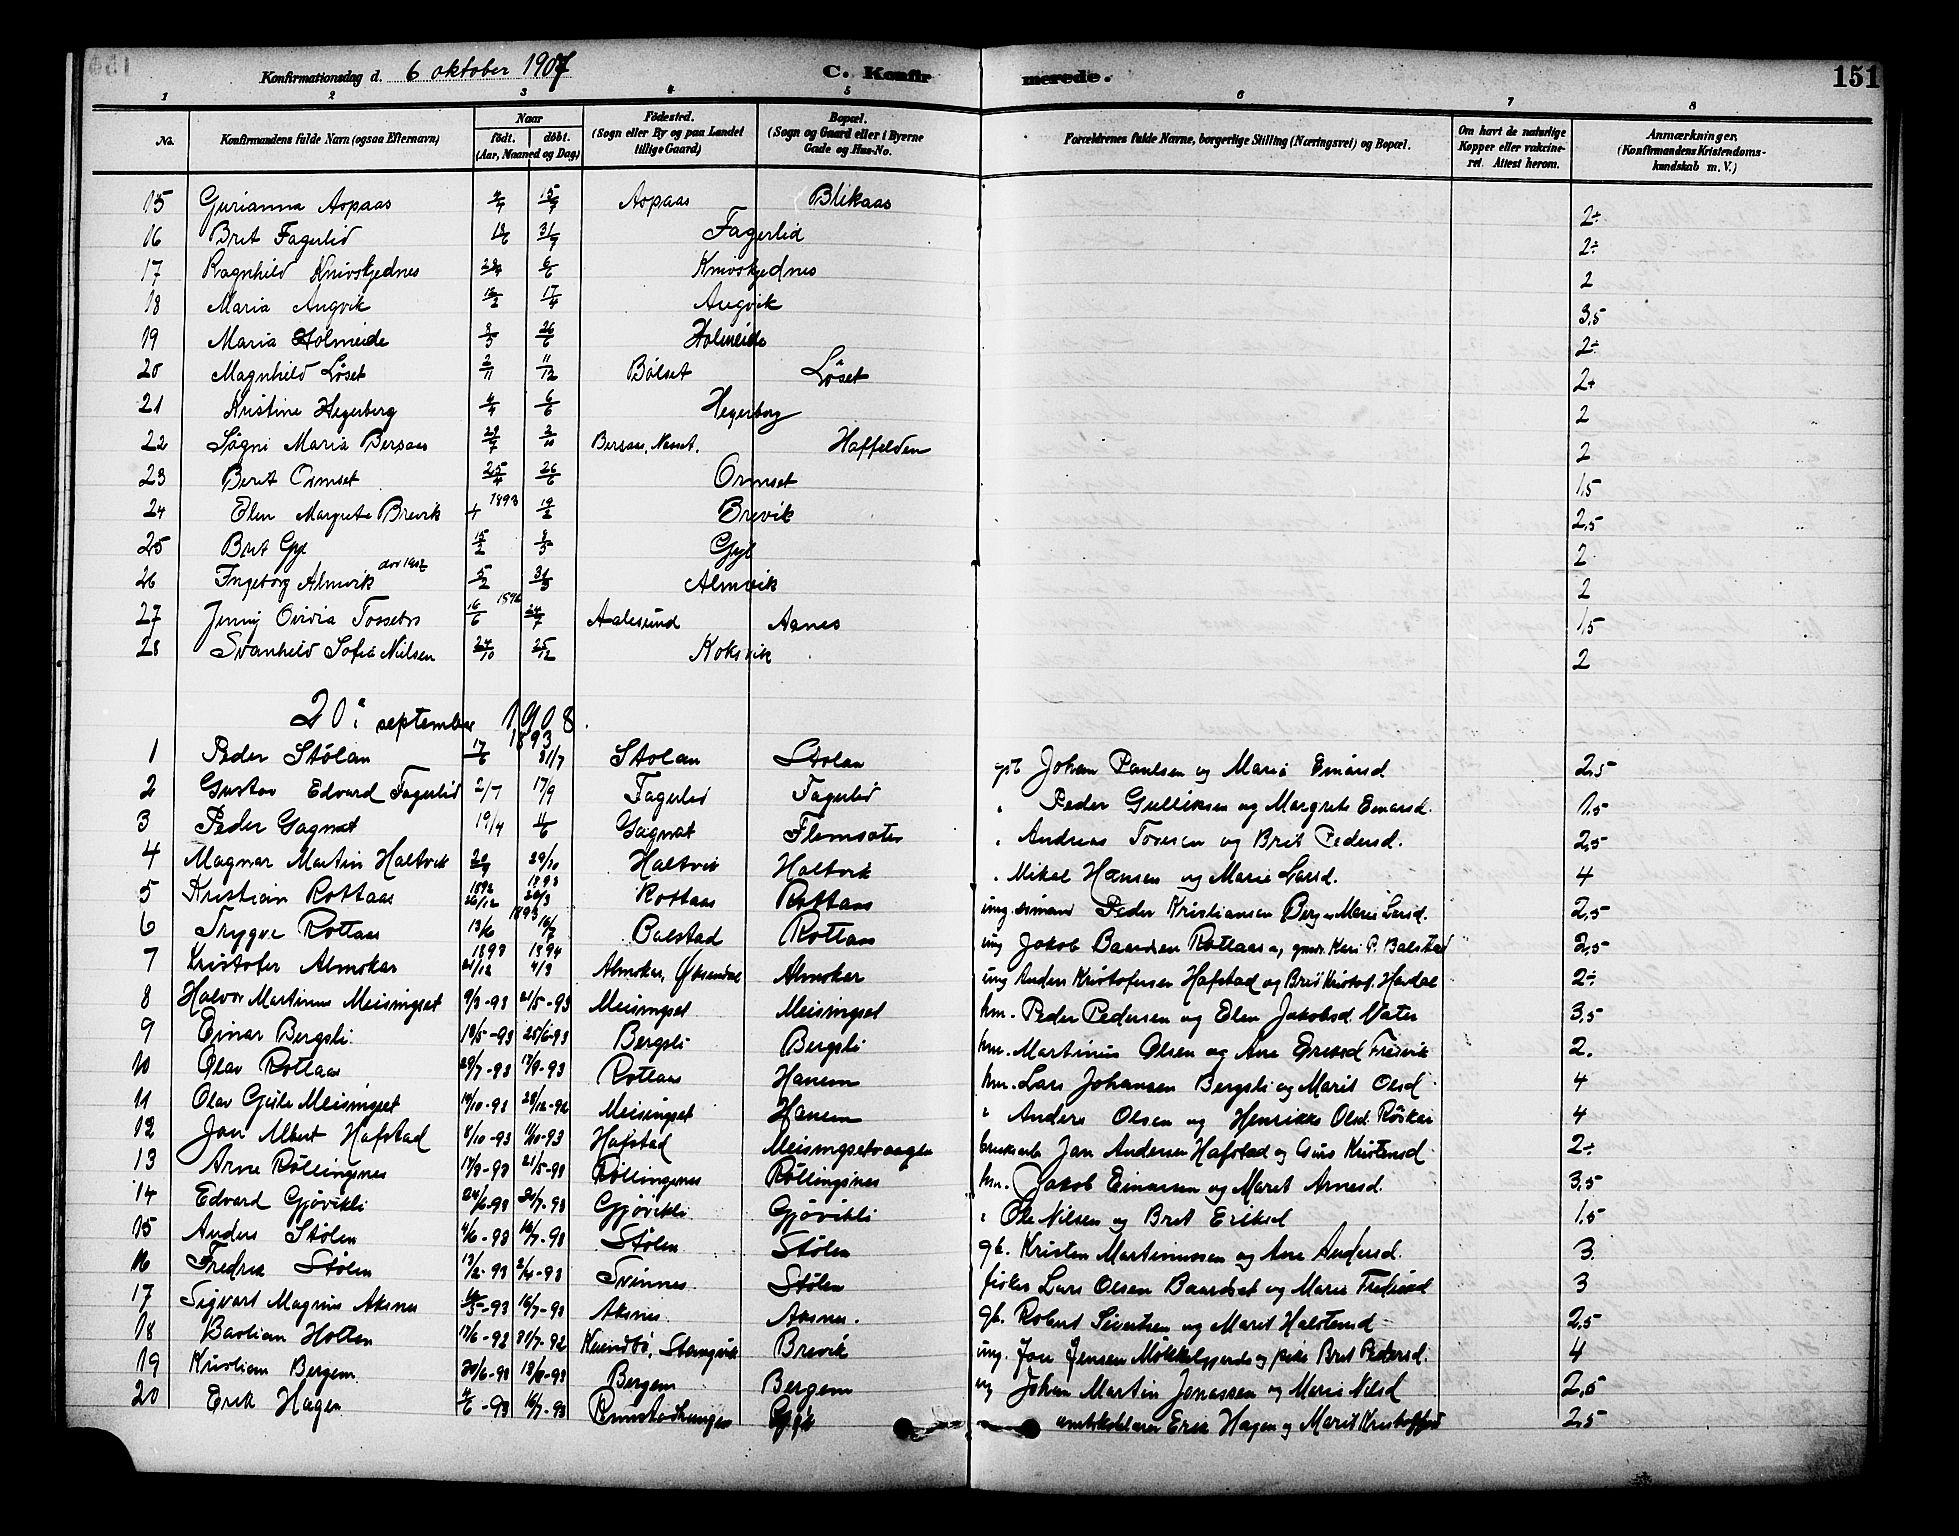 Konfirmationsdag d. 6 oktober 1907 C. Konfirmerede. 151
1 2 3 4 5 6 7 8
No. Konfirmandens fulde Navn (ogsaa Efternavn) Naar født. døbt. (Aar, Maaned og Dag) Fødested. (Sogn eller By og paa Landet tillige Gaard) Bopæl. (Sogn og Gaard eller i Byerne Gade og Hus-No. Forældrenes fulde Navne, borgerlige Stilling (Næringsvei) og Bopæl. Om havt de naturlige Kopper eller vakcineret. Attest herom. Anmærkninger. (Konfirmandens Kristendomskundskab m. V.)
15 Gurianna Aspaas Aspaas Blikaas 2÷
16 Brit Fagerlid 31/7 Fagerlid 2÷
17 Ragnhild Knivskjednes 6/6 Knivskjednes 2
18 Maria Angvik 17/4 Angvik 3,5
19 Maria Holmeide 26/6 Holmeide 2÷
20 Magnhild Løset 2/11 11/12 Bølset Løset 2+
21 Kristine Hegerberg 4/4 6/6 Hegerberg 2
22 Søgni Maria Bersaas 29/7 2/10 Bersaas, Nesset. Haffelden 2
23 Berit Ormset 25/4 26/6 Ormset 1,5
24 Elen Margrete Brevik 1893 19/2 Brevik 2,5
25 Brit Gyl 15/2 Gyl 2
26 Ingeborg Almvik 5/2 31/3 Almvik 2
27 Jenny Tossebro 16/6 24/7 Aalesund Aanes 1,5
28 Svanhild Sofie Nilsen 24/10 25/12 Koksvik 2
20. september 1908.
1893
1 Peder Stølan 17/6 31/7 Stolan Stolan Johan Paulsen og Maria Einarsd 2,5
2 Gustav Edvard Fagerlid 2/7 17/9 Fagerlid Fagerlid " Peder Gulliksen og Margrete Einarsd. 1,5
3 Peder Gagnat 19/4 4/6 Gagnat Flemsæter " Andreas Toresen og Brit Pedersd. 2,5
4 Magnar Martin Haltvik 20/9 29/10 Haltvik Haltvik " Mikal Hansen og Marie Larsd. 4
5 Kristian Rottaas 1892 26/12 1893 26/3 Rottaas Rottaas ung. sømand Peder Kristiansen Berg og Marie Larsd. 2,5
6 Trygve Rottaas 13/6 1893 16/7 Balstad Rottaas ung Jakob Baardsen Rottaas og Kari P. Balstad 2,5
7 Kristofer Almskar 1893 21/12 1894 4/3 Almskar, Øksendal Almskar ung Anders Kristofersen Hafstad og Brit Kristof. Hardal 2÷
8 Halvor Martinus Meisingset 9/3-93 21/5-93 Meisingset Meisingset km. Peder Pedersen og Elen Jakobsd. Vater 3,5
9 Einar Bergsli 18/5-93 25/6-93 Bergsli Bergsli km. Martinus Olsen og Ane Eriksd Freivik 2.
10 Olav Rottaas 29/7-93 17/9-93 Rottaas Hanem km. Lars Johansen Bergsli og Marit Olsd 4
11 Olav Meisingset Meisingset Hanem " Anders Olsen og Henrikke Olsd. Røskar 4
12 Jon Albert Hafstad 4/10-93 Hafstad Meisingsetvaagen Jon Andersen Hafstad og Guri Kristensd 2÷
13 Arne Røllingsnes 17/3-93 21/5-93 Røllingsnes Røllingsnes km. Jakob Einarsen og Maret Arnesd. 3,5
14 Edvard Gjøvikli 24/6-93 Gjøvikli Gjøvikli " Ole Nilsen og Brit Eriksd 1,5
15 Anders Stølen 4/6-93 16/7-93 Stølen Stølen gb. Kristen Martinussen og Ane Andersd. 3.
16 Fredrik Stølen 13/2-93 2/4-93 Svinnes Stølen fisker Lars Olsen Baardset og Marie Fredriksd 3
17 Sigvart Magnus Aksnes 16/7-93 Aksnes Aksnes. gb. Robert Sivertsen og Marit Halstensd 2,5
18 Bastian Holten 17/6-92 31/7-92 Kvindbø, Stangvik Brevik ung. Jon Jensen Mokkelgjerde og pike Brit Pedersd. 4
19 Kristian Bergem 20/6-93 Bergem Bergem ug Johan Martin Jonassen og Marie Nilsd 2,5
20 Erik Hagen 4/6-93 16/7-93 amtskolelærer Erik Hagen og Marit Kristoffersd 2,5